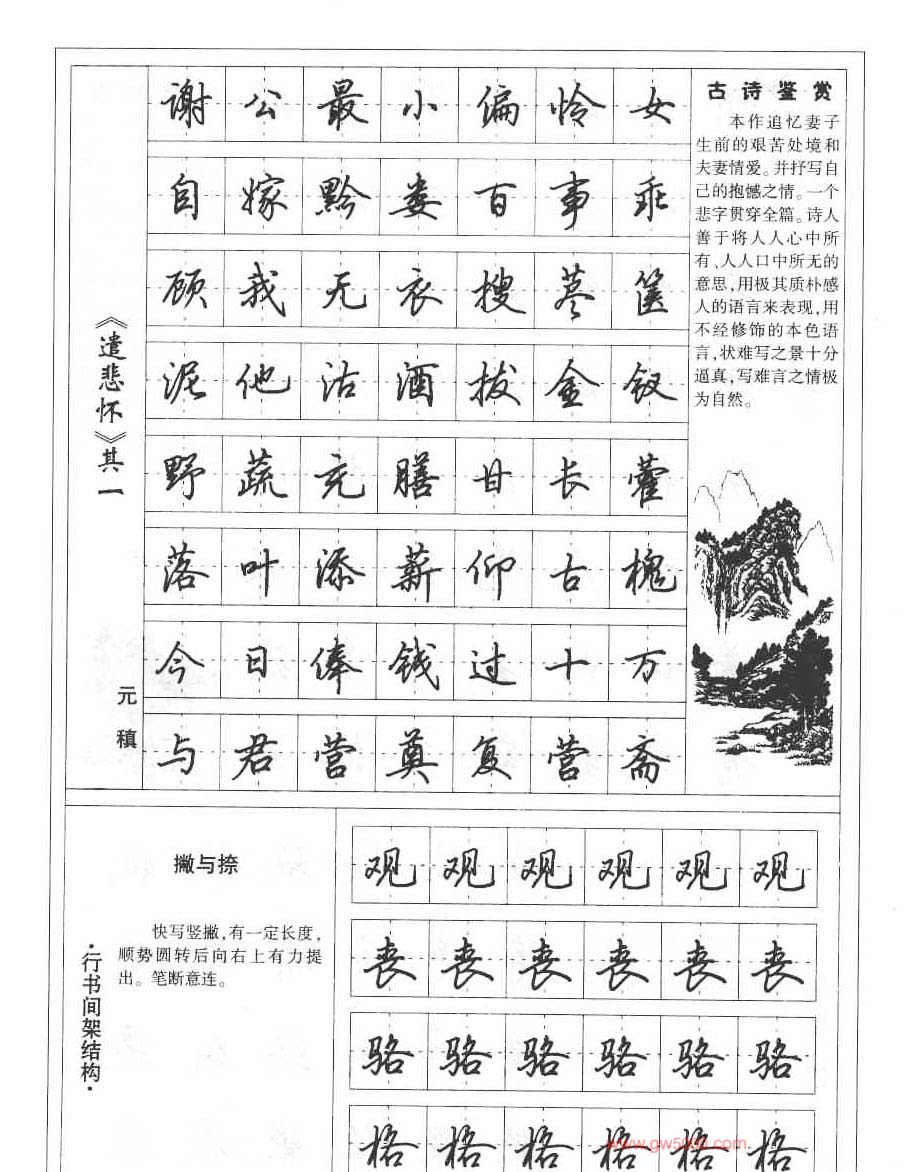 《遣悲怀》其一
元稹
谢公最小偏怜女
自嫁黔娄百事乖
顾我无衣搜荩箧
泥他沽酒拔金钗
野蔬充膳甘长藿
落叶添薪仰古槐
今日俸钱过十万
与君营奠复营斋
古诗鉴赏
本作追忆妻子
生前的艰苦处境和
夫妻情爱。并抒写自
己的抱憾之情。一个
悲字贯穿全篇。诗人
善于将人人心中所
有、人人口中所无的
意思,用极其质朴感
人的语言来表现,用
不经修饰的本色语
言,状难写之景十分
逼真,写难言之情极
为自然。
·行书间架结构·
撇与捺
快写竖撇,有一定长度,
顺势圆转后向右上有力提
出。笔断意连。
观观观观观观
丧丧丧丧丧丧
骆骆骆骆骆骆
格格格格格格